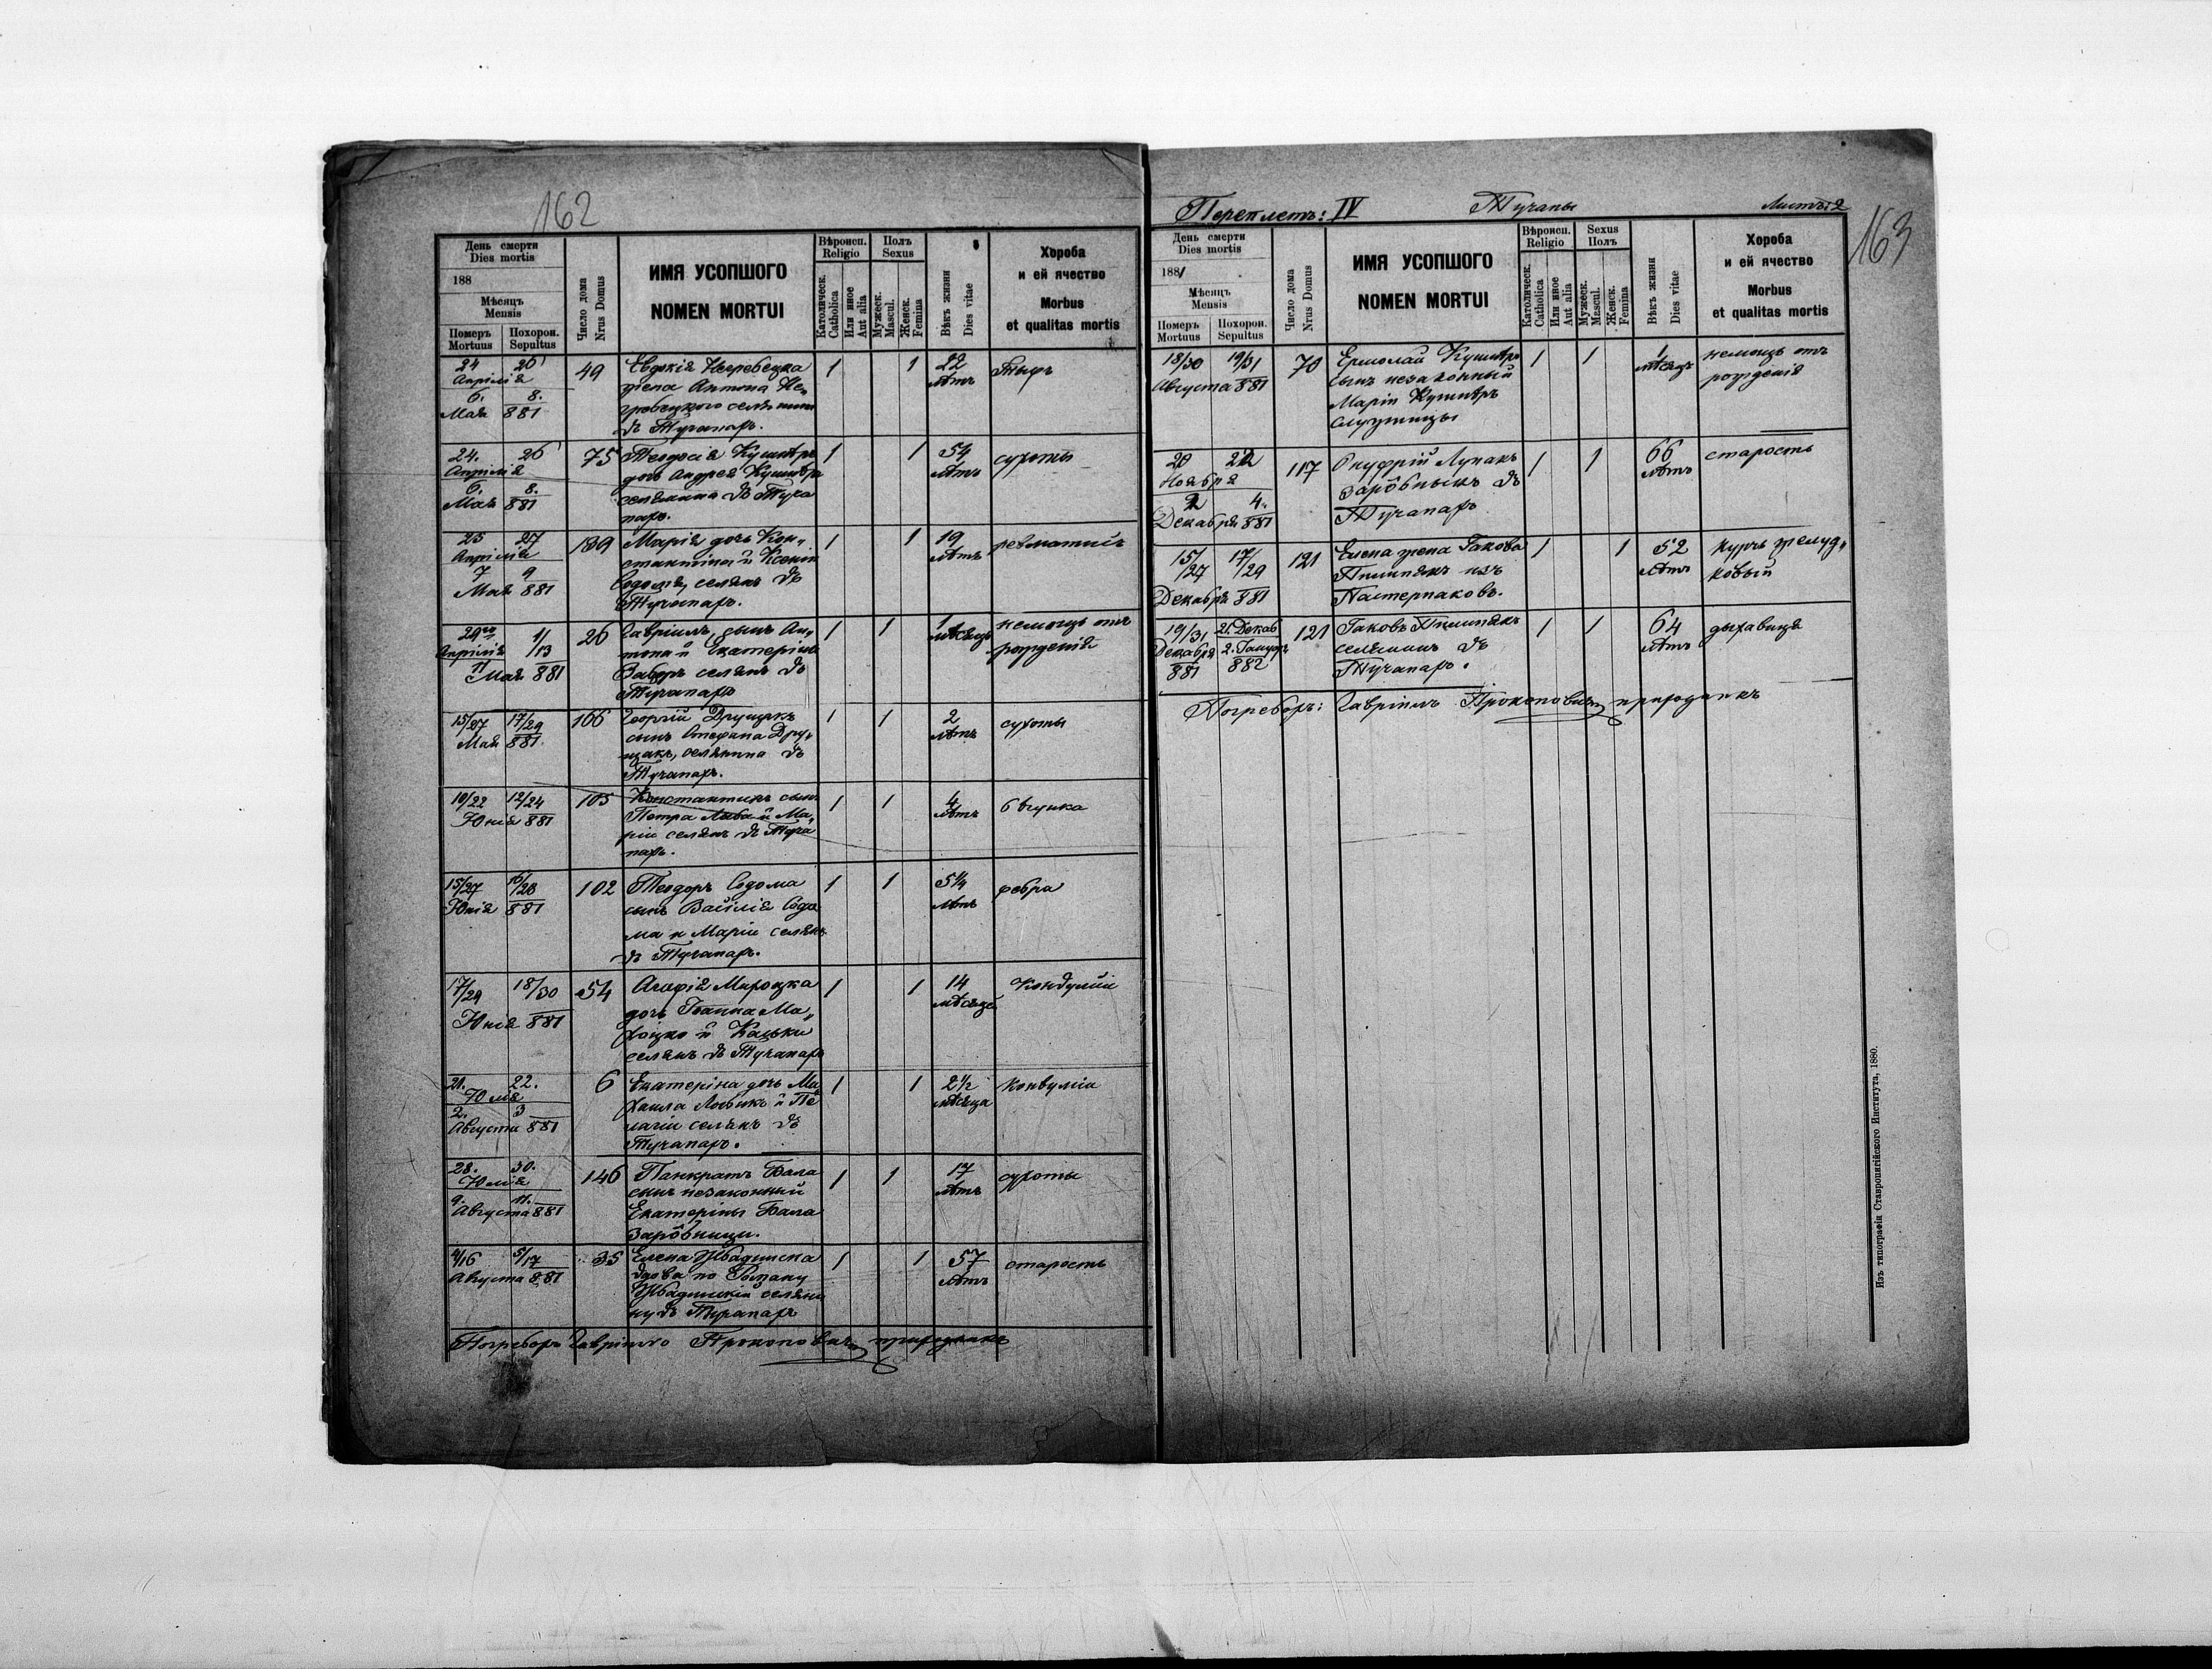 162
День смерти
Dies mortis
188
Мѣсяцъ
Mensis
Померъ
Mortuus
Похорон.
Sepultus
Число дома
Nrus Domus
ИМЯ УСОПШОГО
NOMEN MORTUI
Вѣроисп.
Religio
Католическ.
Catholica
Или иное
Aut alia
Полъ
Sexus
Мужеск.
Mascul.
Женск.
Femina
Вѣкъ жизни
Dies vitae
Хороба
и ей ячество
Morbus
et qualitas mortis
24 26
Апрілія
6. 8.
Мая 881
49
Евдокія Негребецка
жена Антона Не„
гребецкого селянина
въ Тучапахъ.
1 1
22
лѣтъ
Тыфъ
24. 26
Апрілія
6. 8.
Мая 881
75
Теодосія Кушнѣръ
дочь Андрея Кушнѣръ
селянина въ Туча
пахъ.
1 1
54
лѣтъ
сухоты
25 27
Апрілія
7 9
Мая 881
139
Марія дочь Кон„
стантина и Ксенія
Содома, селянъ въ
Тучапахъ.
1 1
19
лѣтъ
ревматисмъ
29го 1/13
Апрілія
11 Мая 881
26
Гавріилъ, сынъ Ан„
тона и Екатерины
селянъ въ
Тучапахъ
1 1
1
мѣсяцъ
немощь отъ
рожденія
15/27 17/29
Мая 881
166
Георгій Друцякъ
сынъ Стефана Дру„
цякъ, селянина въ
Тучапахъ.
1 1
2
лѣтъ
сухоты
10/22 12/24
Юнія 881
105
Константинъ сынъ
Петра и Ма„
ріи селянъ въ Туча
пахъ.
1 1
4
лѣтъ
обгунка
15/27 16/28
Юнія 881
102
Теодоръ Содома
сынъ Василія Содо
ма и Маріи селянъ
въ Тучапахъ.
1 1
5¼
лѣтъ
фебра
17/29 18/30
Юнія 881
54
Агафія Мароцка
дочь Іоанна Ма„
роцко и Каськи
селянъ въ Тучапахъ
1 1
14
мѣсяцей
21. 22.
Юлія
2. 3
Августа 881
6
Екатеріна дочь Ми
хаила и Пе
лагіи селянъ въ
Тучапахъ.
1 1
2½
мѣсяца
Конвулсіи
28. 30.
Юлія
9. 11.
Августа 881
146
Панкратъ Бала
сынъ незаконный
Екатеріны Бала
зарôбници.
1 1
17
лѣтъ
сухоты
4/16 5/17
Августа 881
35
Елена
вдова по Роману
селяни
ну въ Тучапахъ
1 1
57
лѣтъ
старость
Погребохъ Гавріилъ Прокоповичъ приходникъ
Переплетъ: IV Тучапы Листъ: 2
163
День смерти
Dies mortis
1881
Мѣсяцъ
Mensis
Померъ
Mortuus
Похорон.
Sepultus
Число дома
Nrus Domus
ИМЯ УСОПШОГО
NOMEN MORTUI
Вѣроисп.
Religio
Католическ.
Catholica
Или иное
Aut alia
Sexus
Полъ
Мужеск.
Mascul.
Женск.
Femina
Вѣкъ жизни
Dies vitae
Хороба
и ей ячество
Morbus
et qualitas mortis
18/30 19/31
Августа 881
70
Ермолай Кушнѣръ
сынъ незаконный
Маріи Кушнѣръ
служницы
1 1
1
мѣсяцъ
немощь отъ
рожденія
20 22
Ноября
2 4.
Декабря 881
117
Онуфрій Лупакъ
зарôбныкъ въ
Тучапахъ
1 1
66
лѣтъ
старость
15/27 17/29
Декабря 881
121
Елена жена Іакова
Пилипякъ изъ
Пастернаковъ.
1 1
52
лѣтъ
Курчъ желуд„
ковый
19/31 21. Декаб
Декабря 2. Януар
881 882
121
Іаковъ Пилипякъ
селянинъ въ
Тучапахъ.
1 1
64
лѣтъ
дыхавиця
Погребохъ: Гавріилъ Прокоповичъ приходникъ
Изъ типографіи Ставропигійского Института, 1880.